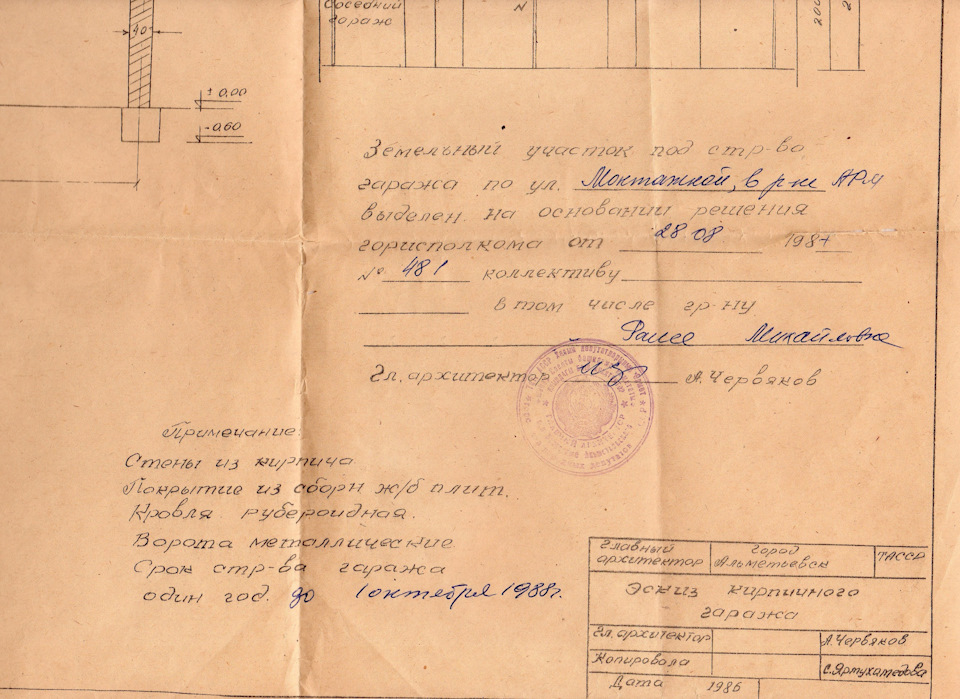 Соседний
гараж
N
200
40
± 0,00
-0,60
Земельный участок под стр-во
гаража по ул. Монтажной, в р-не АРМ
выделен на основании решения
горисполкома от 28.08 1987
№ 481 коллективу
в том числе гр-ну
Раисе Михайловне
Гл. архитектор А. Червяков
Примечание.
Стены из кирпича
Покрытие из сборн ж/б плит.
Кровля рубероидная.
Ворота металлические
Срок стр-ва гаража
один год. до 1 октября 1988г.
Главный архитектор город Альметьевск ТАССР
Эскиз кирпичного
гаража
Гл. архитектор А. Червяков
Копировала С. Яртухамедова
Дата 1986